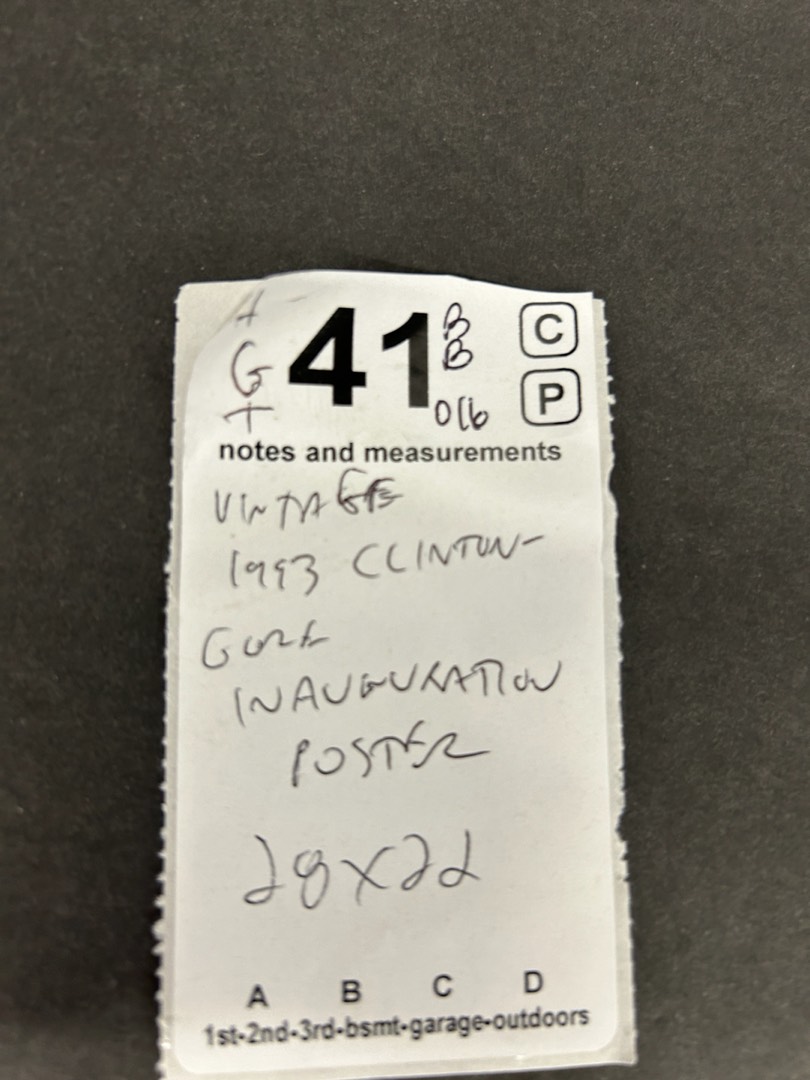 G
T
41
B
B
016
C
P
notes and measurements
VINTAGE
1993 CLINTON-
GORE
INAUGURATION
POSTER
28x22
A B C D
1st-2nd-3rd-bsmt-garage-outdoors